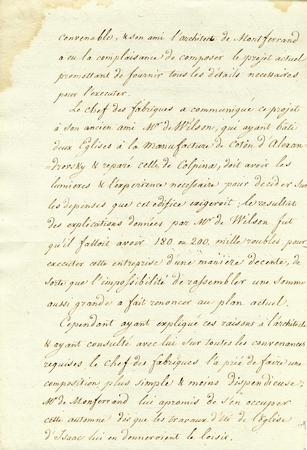 convenable, & son ami l'architecte de Montferrand
a eu la complaisance de composer le projet actuel
promettant de fournir tous les détails necessaires
pour l'executer.
Le chef des fabriques a communiqué ce projet
à son ancien ami Mr. de Wilson, qui ayant bâti
deux Eglises à la Manufacture de Coton d'Alexan-
drovsky & reparé celle de Colpina, doit avoir les
lumières & l'experience necessaire pour decider sur
les depenses que cet edifice exigeroit. Le resultat
des explications données par Mr. de Wilson fut
qu'il falloit avoir 180 en 200. mille roubles pour
executer cette entreprise d'une manière decente, de
sorte que l'impossibilité de rassembler une somme
aussi grande a fait renoncer au plan actuel.
Cependant ayant expliqué ces raisons à l'architecte
& ayant consulté avec lui sur toutes les convenances
requises, le chef des fabriques l'a prié de faire une
composition plus simple & moins dispendieuse:
Mr. de Monferrand lui a promis de s'en occuper
cette automne dès que les travaux d'été de l'Eglise
d'Isaac lui en donneroient le loisir.